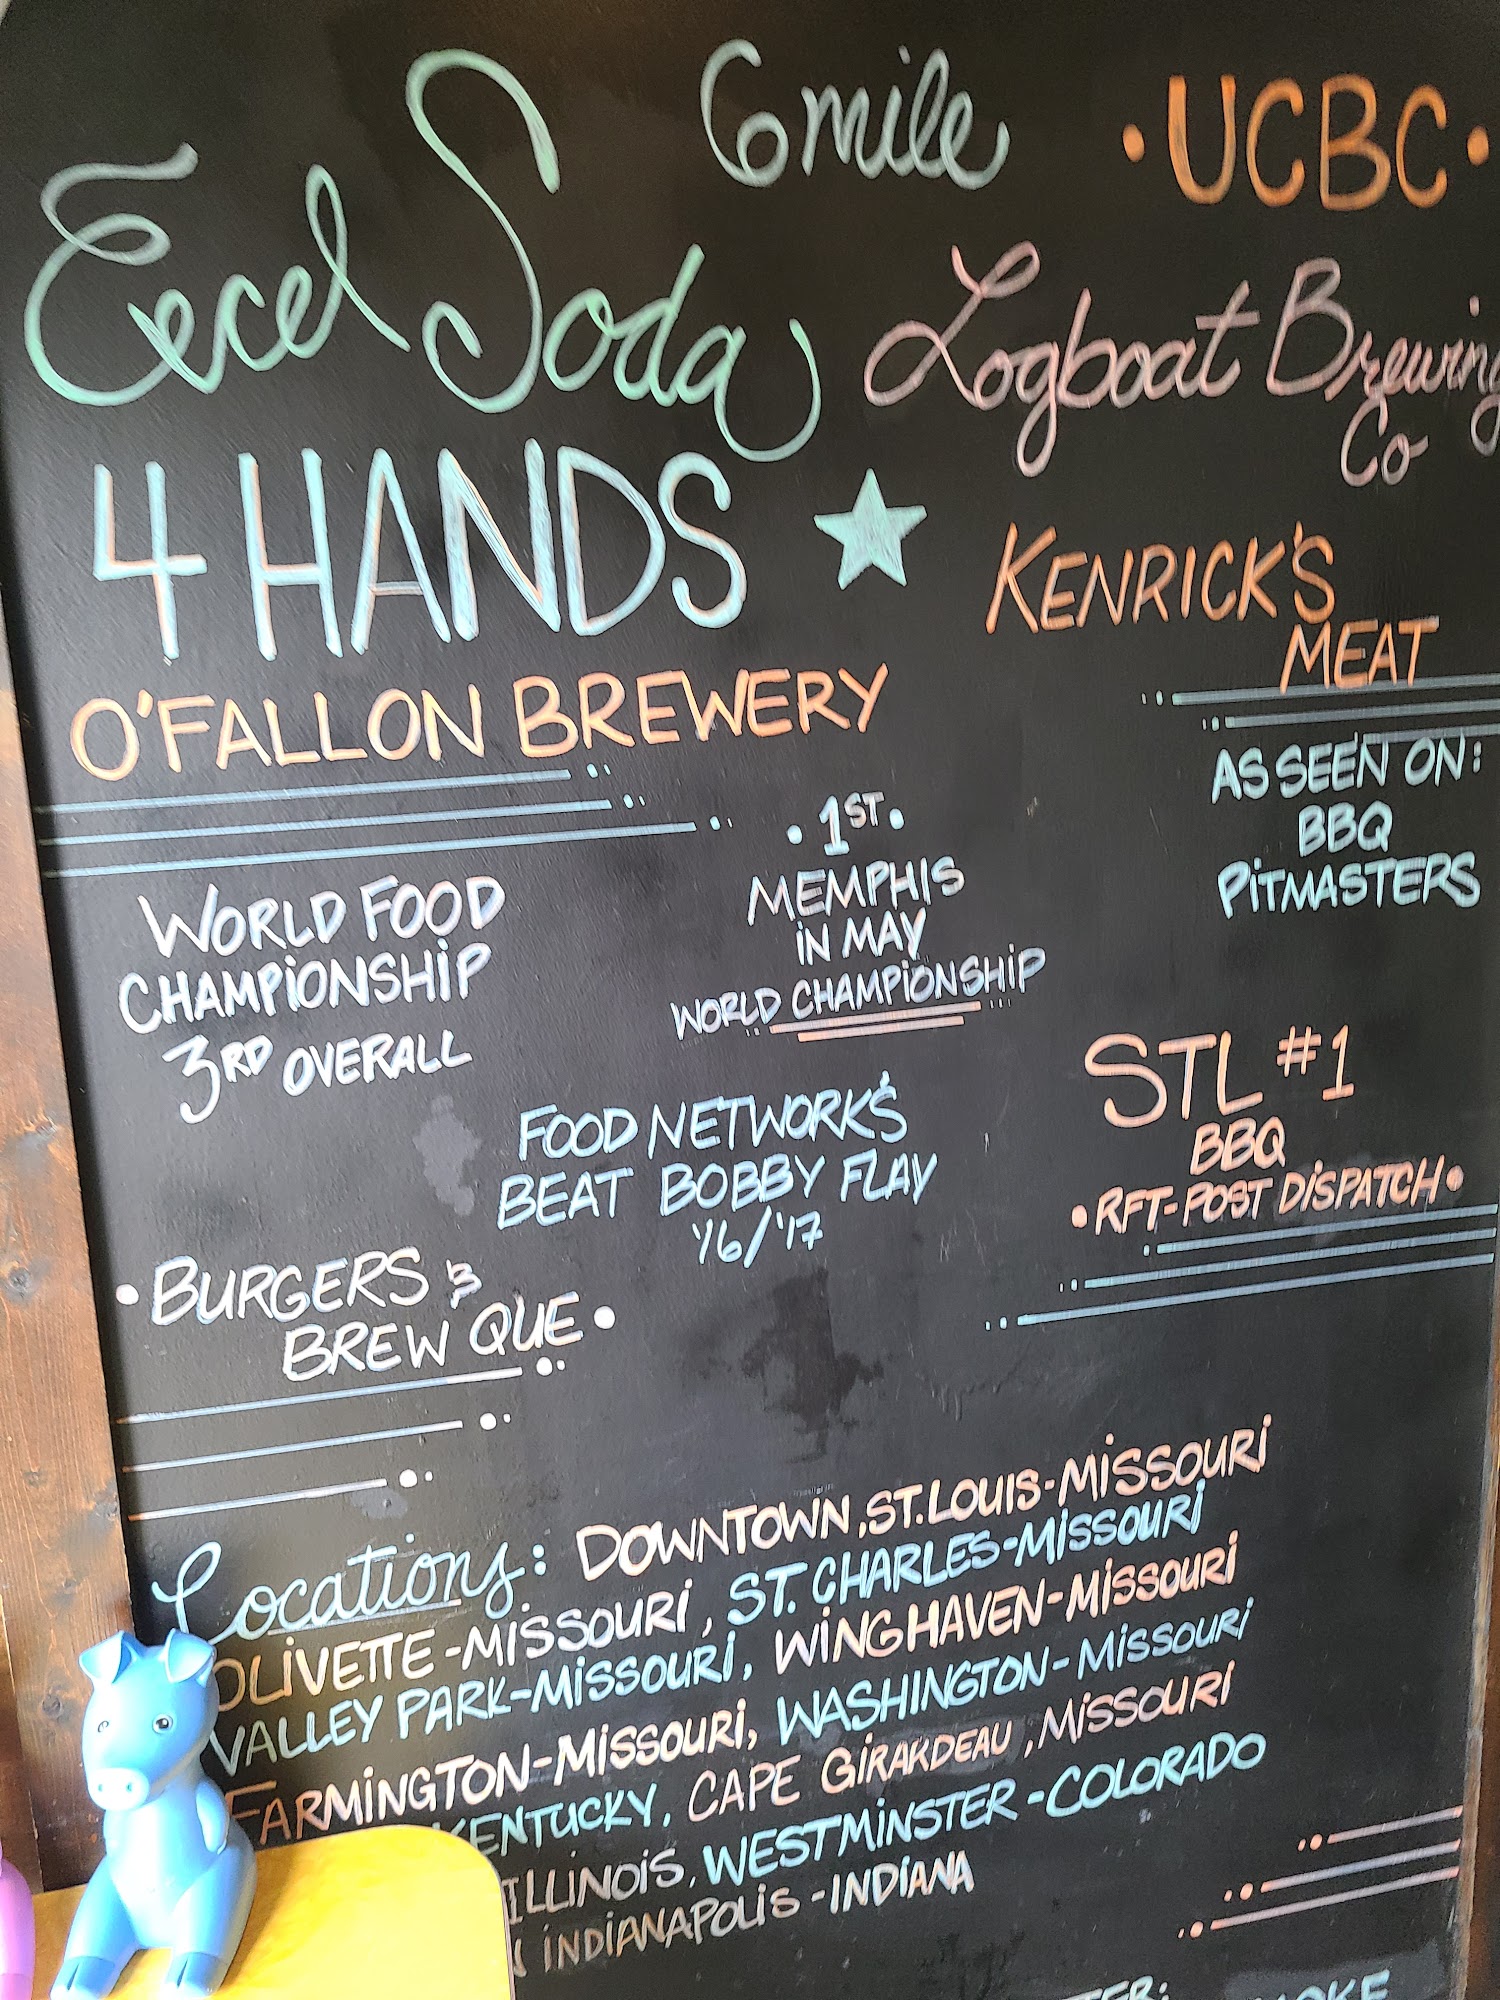 6 mile
• UCBC •
Excel Soda
Logboat Brewing
Co
4 HANDS
KENRICK'S
MEAT
O'FALLON BREWERY
AS SEEN ON:
BBQ
PITMASTERS
WORLD FOOD
CHAMPIONSHIP
3RD OVERALL
• 1ST •
MEMPHIS
IN MAY
WORLD CHAMPIONSHIP
FOOD NETWORK'S
BEAT BOBBY FLAY
'16/'17
STL #1
BBQ
• RFT-POST DISPATCH •
• BURGERS &
BREW QUE •
Locations: DOWNTOWN, ST. LOUIS-MISSOURI
OLIVETTE-MISSOURI, ST. CHARLES-MISSOURI
VALLEY PARK-MISSOURI, WINGHAVEN-MISSOURI
FARMINGTON-MISSOURI, WASHINGTON-MISSOURI
KENTUCKY, CAPE GIRARDEAU, MISSOURI
ILLINOIS, WESTMINSTER-COLORADO
INDIANAPOLIS-INDIANA